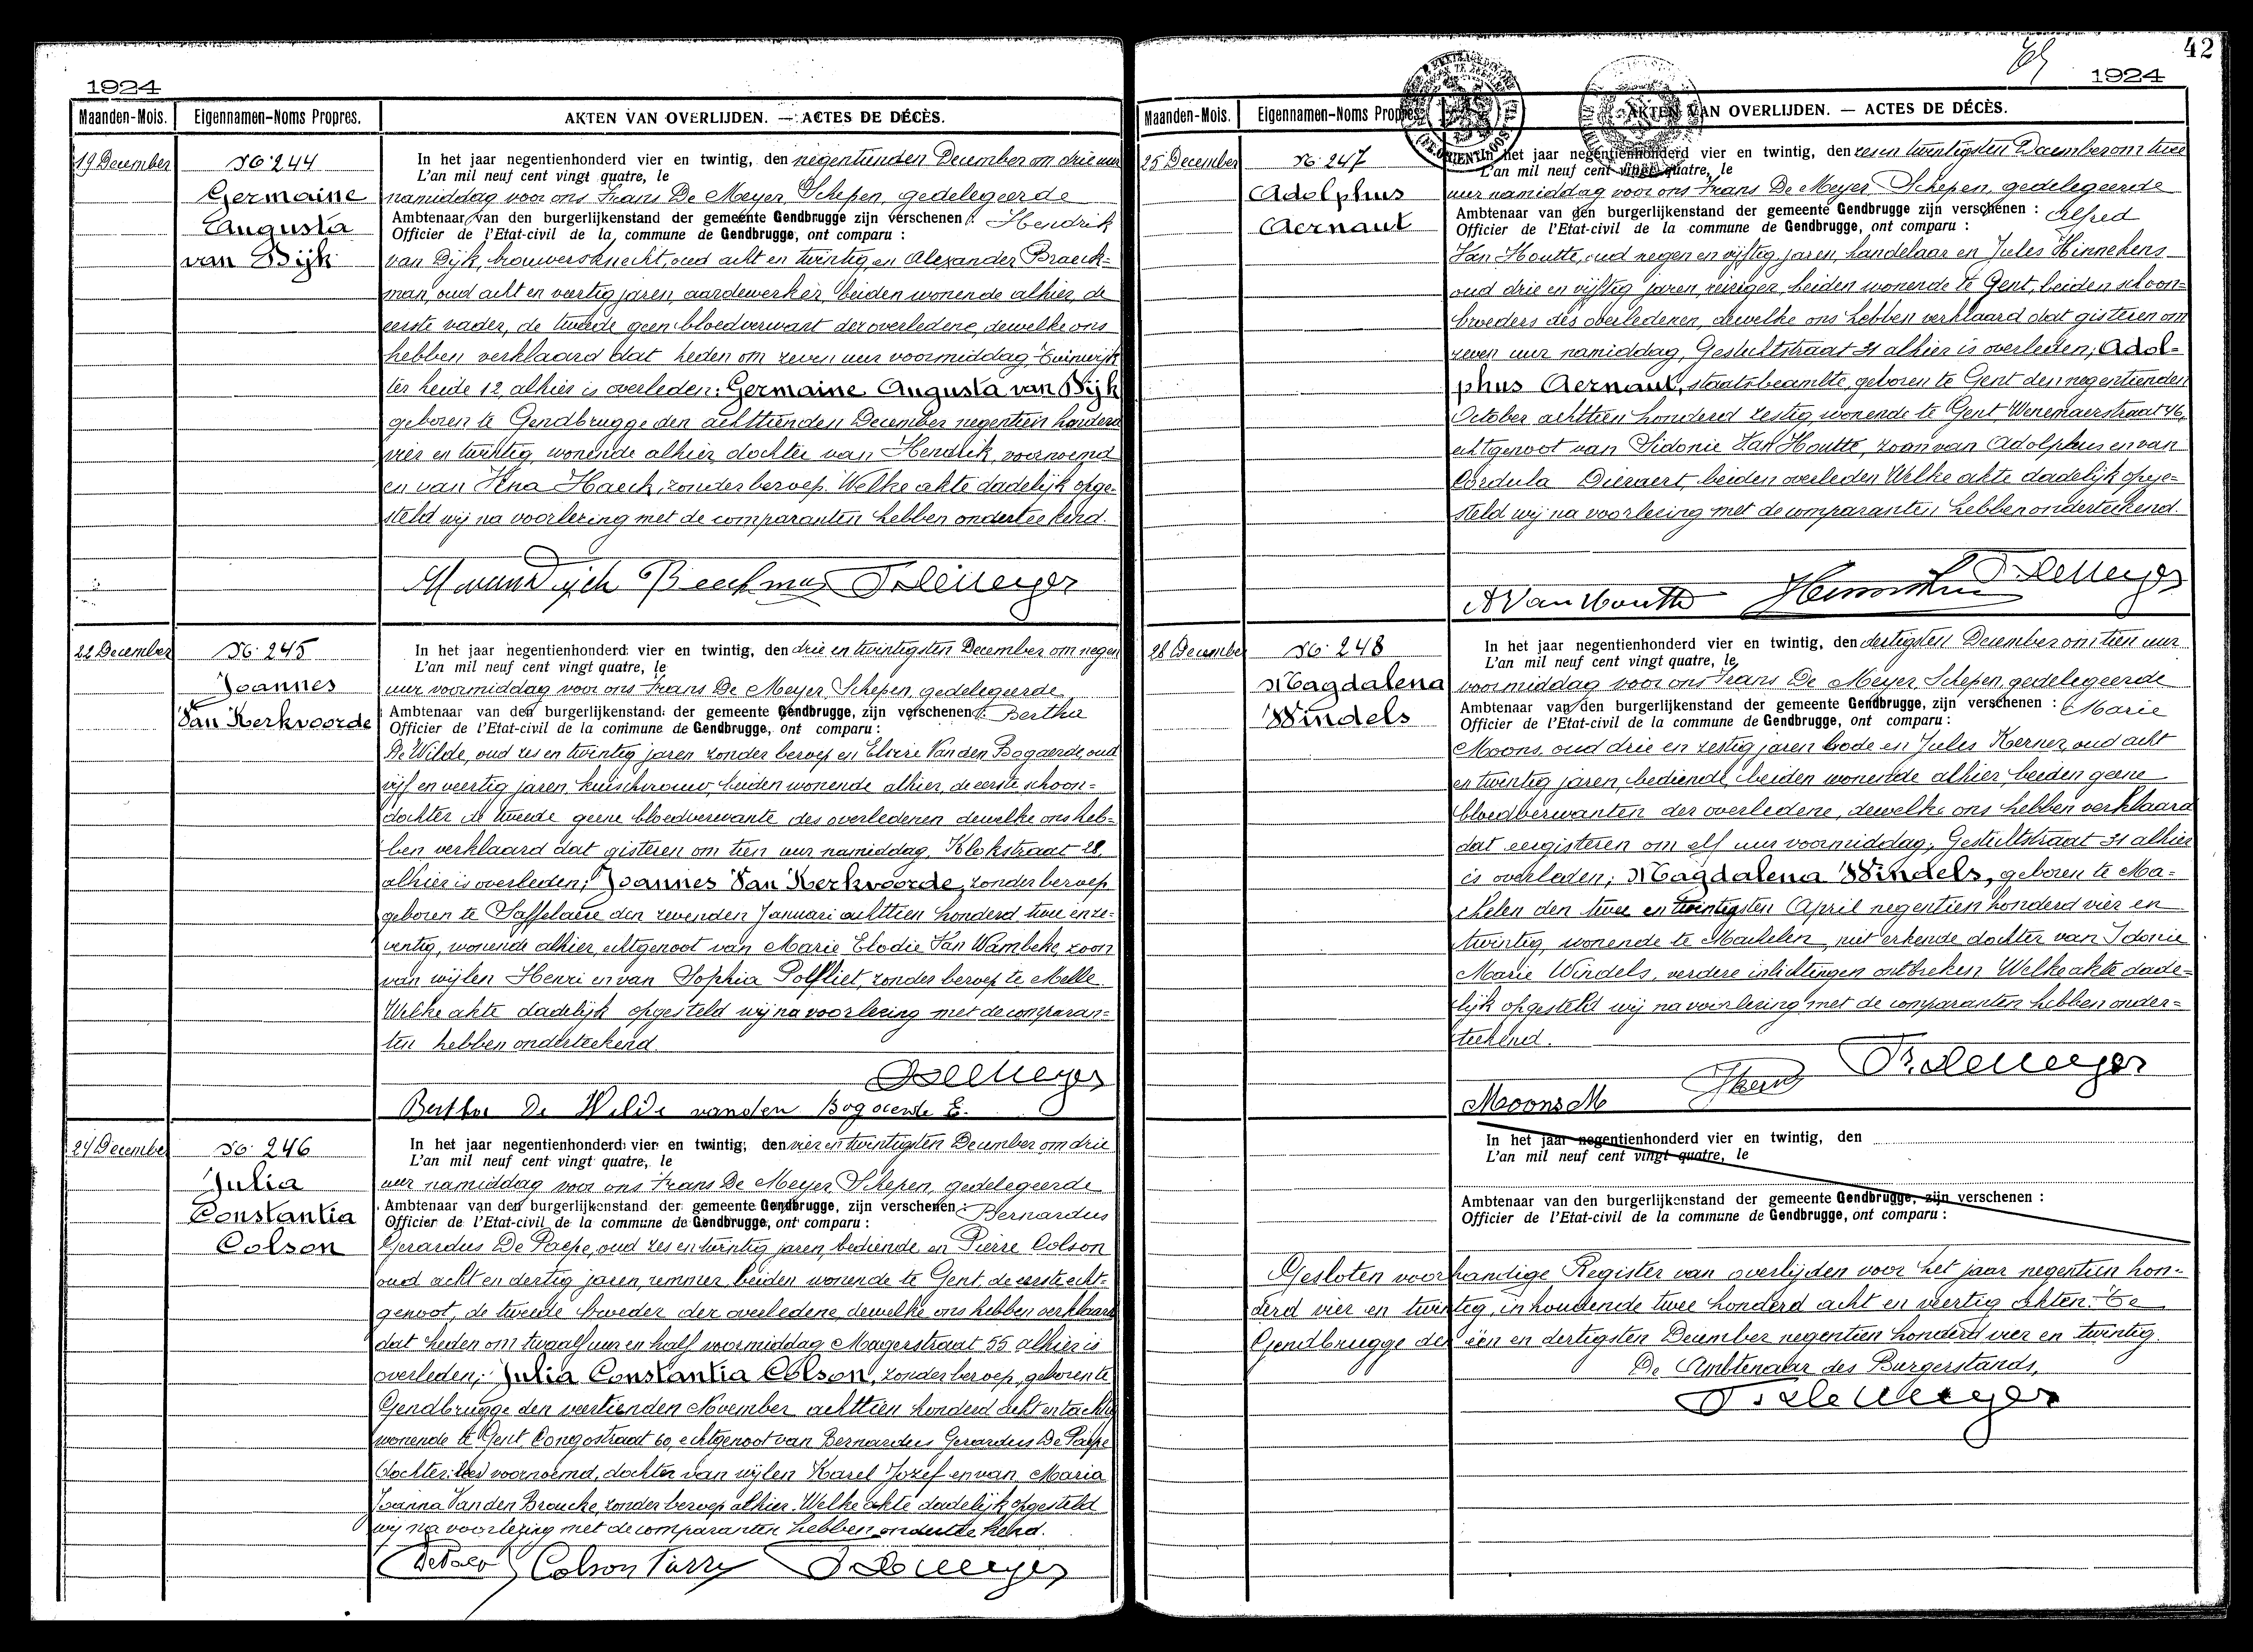 1924
Maanden-Mois. Eigennamen-Noms Propres. AKTEN VAN OVERLIJDEN. — ACTES DE DÉCÈS.
19 December
No. 244
Germaine
Augusta
van Dijk
In het jaar negentienhonderd vier en twintig, den negentienden December om drie uur
L'an mil neuf cent vingt quatre, le
namiddag voor ons Frans De Meyer, Schepen, gedelegeerde
Ambtenaar van den burgerlijkenstand der gemeente Gendbrugge zijn verschenen : Hendrik
Officier de l'Etat-civil de la commune de Gendbrugge, ont comparu :
van Dijk, brouwersknecht, oud acht en twintig, en Alexander Braeck=
man, oud acht en veertig jaren, aardewerker, beiden wonende alhier, de
eerste vader, de tweede geen bloedverwant der overledene, dewelke ons
hebben verklaard dat heden om zeven uur voormiddag, Tuinwijk
ter heide 12, alhier is overleden: Germaine Augusta van Dijk
geboren te Gendbrugge den achttienden December negentien honderd
vier en twintig, wonende alhier, dochter van Hendrik, voornoemd
en van Haeck, zonder beroep. Welke akte dadelijk opge=
steld wij na voorlezing met de comparanten hebben onderteekend.
22 December
No. 245
Joannes
Van Kerkvoorde
In het jaar negentienhonderd vier en twintig, den drie en twintigsten December om negen
L'an mil neuf cent vingt quatre, le
uur voormiddag voor ons Frans De Meyer, Schepen, gedelegeerde
Ambtenaar van den burgerlijkenstand der gemeente Gendbrugge, zijn verschenen : Bertha
Officier de l'Etat-civil de la commune de Gendbrugge, ont comparu :
De Wilde, oud zes en twintig jaren zonder beroep en Elvire Van den Bogaerde, oud
vijf en veertig jaren, kuischvrouw, beiden wonende alhier, de eerste schoon=
dochter de tweede geene bloedverwante des overledenen dewelke ons heb=
ben verklaard dat gisteren om tien uur namiddag, Klokstraat 28,
alhier is overleden; Joannes Van Kerkvoorde, zonder beroep
geboren te Saffelaere den zevenden Januari achttien honderd twee en ze=
ventig, wonende alhier, echtgenoot van Marie Elodie Van Wambeke, zoon
van wijlen Henri en van Sophia Polfliet, zonder beroep te Melle.
Welke akte dadelijk opgesteld wij na voorlezing met de comparan=
ten hebben onderteekend.
F. De Meyer
Bertha De Wilde vanden Bogaerde E.
24 December
No. 246
Julia
Constantia
Colson
In het jaar negentienhonderd vier en twintig, den vier en twintigsten December om drie
L'an mil neuf cent vingt quatre, le
uur namiddag voor ons Frans De Meyer, Schepen, gedelegeerde
Ambtenaar van den burgerlijkenstand der gemeente Gendbrugge, zijn verschenen : Bernardus
Officier de l'Etat-civil de la commune de Gendbrugge, ont comparu :
Gerardus De Paepe, oud zes en twintig jaren, bediende en Pierre Colson
oud acht en dertig jaren, remmer, beiden wonende te Gent, de eerste echt=
genoot, de tweede broeder der overledene, dewelke ons hebben verklaard
dat heden om twaalf uur en half voormiddag Magerstraat 55 alhier is
overleden; Julia Constantia Colson, zonder beroep, geboren te
Gendbrugge den veertienden November achttien honderd acht en tachtig
wonende te Gent, Congostraat 60, echtgenoot van Bernardus Gerardus De Paepe
voornoemd, dochter van wijlen Karel Jozef en van Maria
Joanna Vanden Broucke, zonder beroep alhier. Welke akte dadelijk opgesteld
wij na voorlezing met de comparanten hebben onderteekend.
De Meyer
42
1924
Maanden-Mois. Eigennamen-Noms Propres. AKTEN VAN OVERLIJDEN. — ACTES DE DÉCÈS.
25 December
No. 247
Adolphus
Aernaut
In het jaar negentienhonderd vier en twintig, den zes en twintigsten December om twee
L'an mil neuf cent vingt quatre, le
uur namiddag voor ons Frans De Meyer, Schepen, gedelegeerde
Ambtenaar van den burgerlijkenstand der gemeente Gendbrugge zijn verschenen : Alfred
Officier de l'Etat-civil de la commune de Gendbrugge, ont comparu :
Van Houtte, oud negen en vijftig jaren, handelaar en Jules Hinnekens
oud drie en vijftig jaren, reiziger, beiden wonende te Gent, beiden schoon=
broeders des overledenen, dewelke ons hebben verklaard dat gisteren om
zeven uur namiddag, Gestichtstraat 31 alhier is overleden; Adol=
phus Aernaut, staatsbeambte, geboren te Gent den negentienden
October achttien honderd zestig, wonende te Gent Wenemaerstraat 46,
echtgenoot van Sidonie Van Houtte, zoon van Adolphus en van
Cordula Dieraert, beiden overleden Welke akte dadelijk opge=
steld wij na voorlezing met de comparanten hebben onderteekend.
A Van Houtte F. De Meyer
28 December
No. 248
Magdalena
Windels
In het jaar negentienhonderd vier en twintig, den dertigsten December om tien uur
L'an mil neuf cent vingt quatre, le
voormiddag voor ons Frans De Meyer, Schepen, gedelegeerde
Ambtenaar van den burgerlijkenstand der gemeente Gendbrugge, zijn verschenen : Marie
Officier de l'Etat-civil de la commune de Gendbrugge, ont comparu :
Moons, oud drie en zestig jaren bode en Jules Kerner, oud acht
en twintig jaren, bediende, beiden wonende alhier, beiden geene
bloedverwanten der overledene, dewelke ons hebben verklaard
dat eergisteren om elf uur voormiddag, Gestichtstraat 31 alhier
is overleden; Magdalena Windels, geboren te Ma=
chelen den twee en twintigsten April negentien honderd vier en
twintig, wonende te Machelen, niet erkende dochter van Idonie
Marie Windels, verdere inlichtingen ontbreken Welke akte dade=
lijk opgesteld wij na voorlezing met de comparanten hebben onder=
teekend.
Moons M Fr. De Meyer
In het jaar negentienhonderd vier en twintig, den
L'an mil neuf cent vingt quatre, le
Ambtenaar van den burgerlijkenstand der gemeente Gendbrugge, zijn verschenen :
Officier de l'Etat-civil de la commune de Gendbrugge, ont comparu :
Gesloten voorhandige Register van overlijden voor het jaar negentien hon=
derd vier en twintig, inhoudende twee honderd acht en veertig akten. Te
Gendbrugge den een en dertigsten December negentien honderd vier en twintig.
De Ambtenaar des Burgerstands,
F. De Meyer